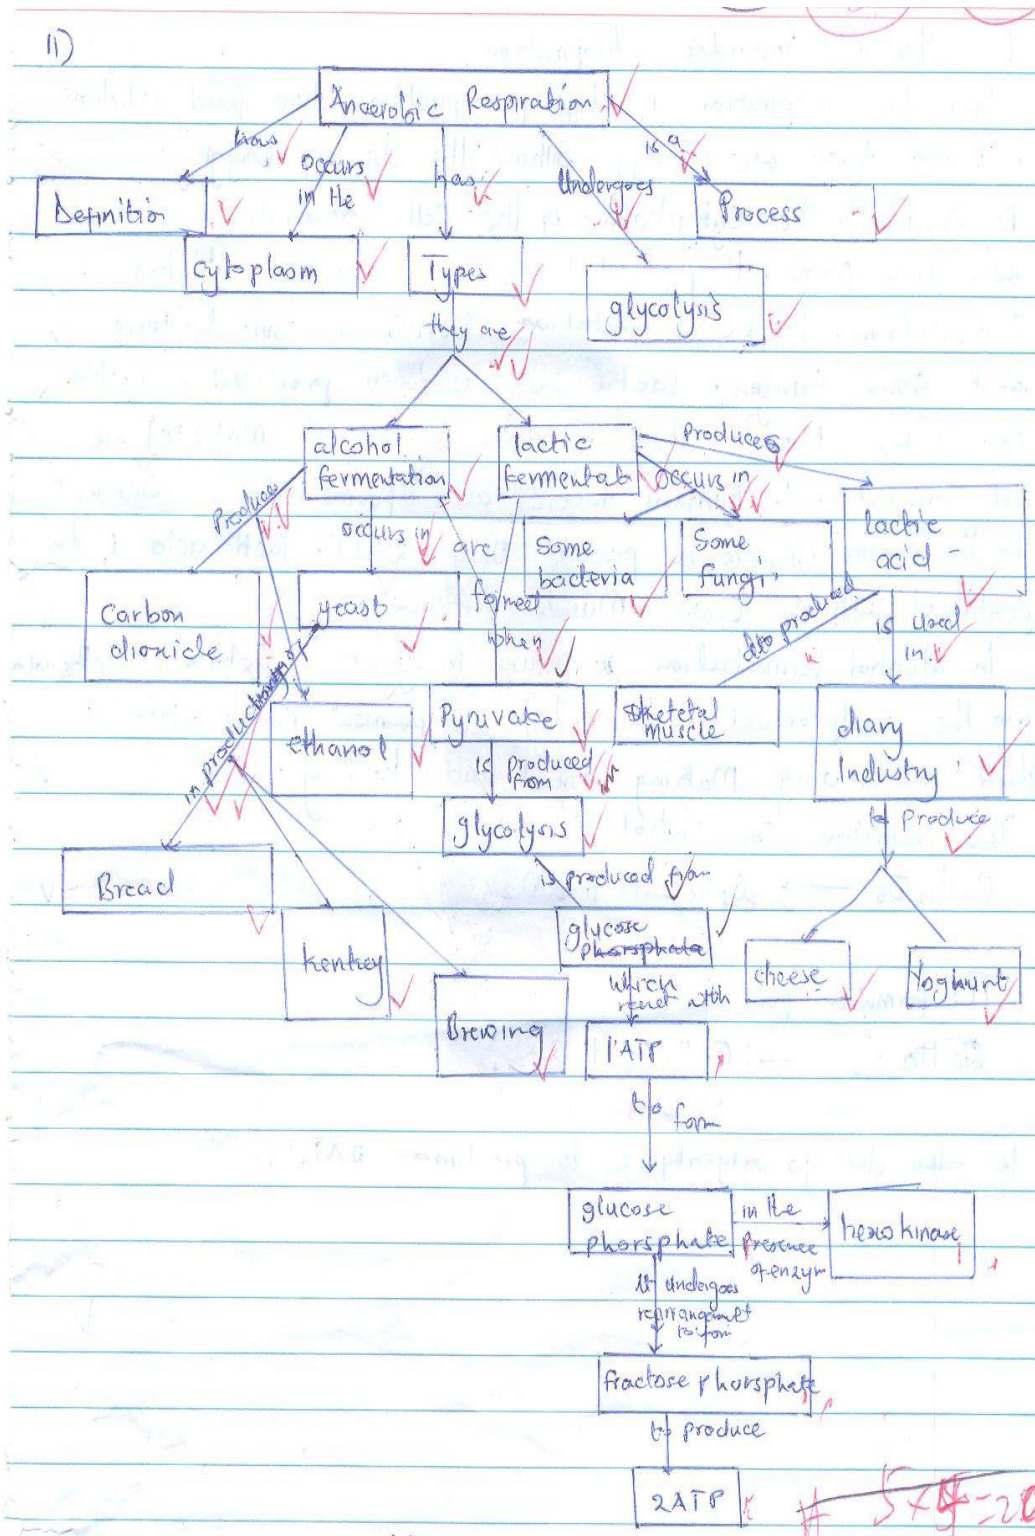 11)
Anaerobic Respiration
has
occurs
in the
has
Undergoes
is a
Definition
Process
cytoplasm
Types
glycolysis
they are
alcohol
fermentation
lactic
Produces
occurs in
Produces
occurs in
are
formed
when
Some
bacteria
Some
fungi
lactic
acid
Carbon
dioxide
yeast
also produced
is used
in
in production of
ethanol
Pyruvate
Sketetal
muscle
diary
Industry
is produced
from
to produce
glycolysis
Bread
is produced from
glucose
phorsphate
kenkey
which
react with
cheese
Yoghurt
Brewing
1ATP
to form
glucose
phorsphate
in the
presence
of enzym
hexokinase
It undergoes
rearrangemet
to form
fractose phorsphate
to produce
2ATP
5x4=20